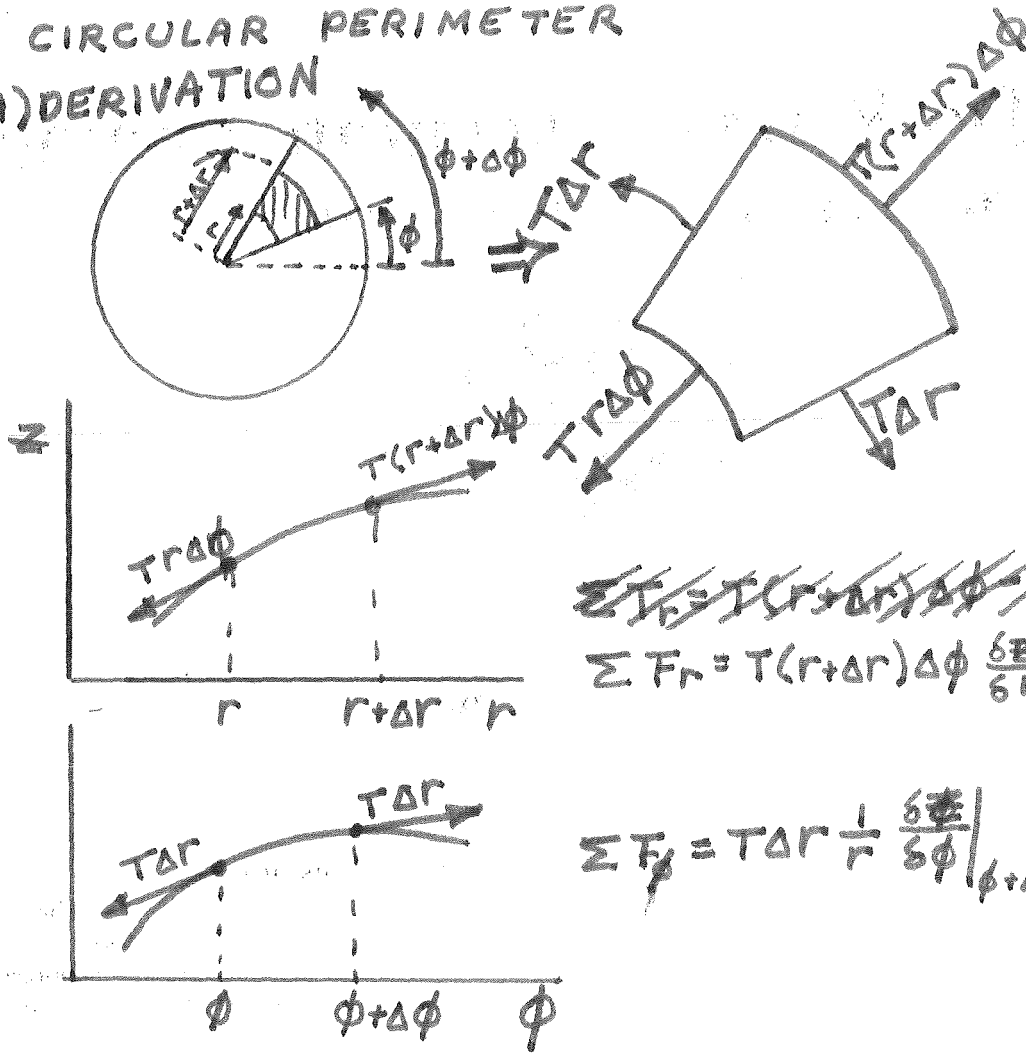 CIRCULAR PERIMETER
)DERIVATION
ϕ+Δϕ
r+Δr
r
ϕ
⇒
TΔr
T(r+Δr)Δϕ
TrΔϕ
TΔr
z
T(r+Δr)Δϕ
TrΔϕ
r
r+Δr
r
ΣTr=T(r+Δr)Δϕ-
ΣFr=T(r+Δr)Δϕ δz/δ
TΔr
TΔr
ϕ
ϕ+Δϕ
ϕ
ΣFϕ=TΔr 1/r δz/δϕ|ϕ+